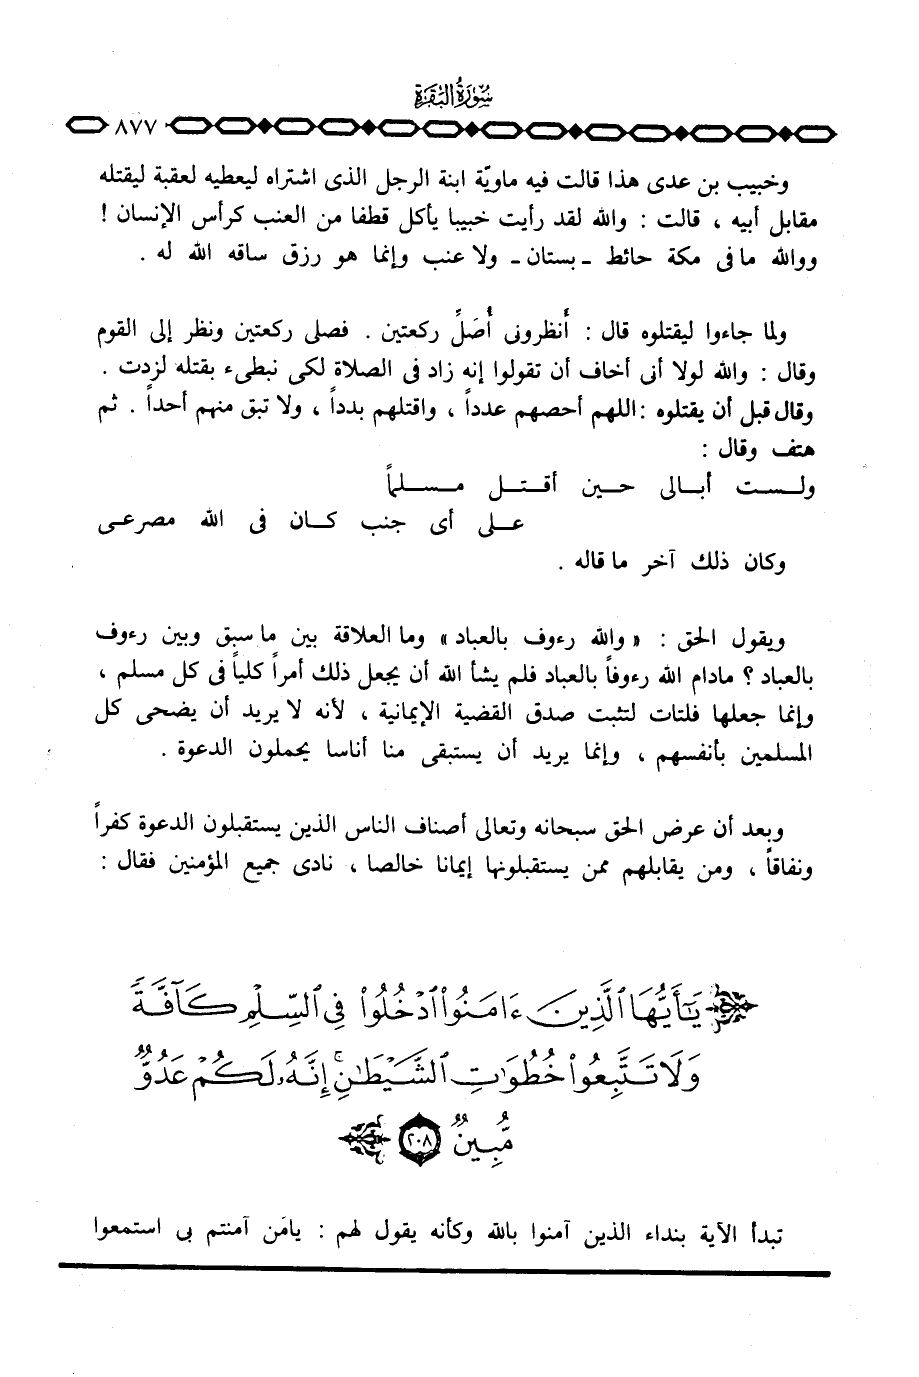 سورة البقرة
٨٧٧
وخبيب بن عدى هذا قالت فيه ماويّة ابنة الرجل الذى اشتراه ليعطيه لعقبة ليقتله
مقابل أبيه ، قالت : والله لقد رأيت خبيبا يأكل قطفا من العنب كرأس الإنسان !
ووالله ما فى مكة حائط ـ بستان ـ ولا عنب وإنما هو رزق ساقه الله له .
ولما جاءوا ليقتلوه قال : أَنظرونى أُصَلِّ ركعتين . فصلى ركعتين ونظر إلى القوم
وقال : والله لولا أنى أخاف أن تقولوا إنه زاد فى الصلاة لكى نبطىء بقتله لزدت .
وقال قبل أن يقتلوه : اللهم أحصهم عدداً ، واقتلهم بدداً ، ولا تبق منهم أحداً . ثم
هتف وقال :
ولست أبالى حين أقتل مسلماً
على أى جنب كان فى الله مصرعى
وكان ذلك آخر ما قاله .
ويقول الحق : « والله رءوف بالعباد » وما العلاقة بين ما سبق وبين رءوف
بالعباد ؟ مادام الله رءوفاً بالعباد فلم يشأ الله أن يجعل ذلك أمراً كلياً فى كل مسلم ،
وإنما جعلها فلتات لتثبت صدق القضية الإيمانية ، لأنه لا يريد أن يضحى كل
المسلمين بأنفسهم ، وإنما يريد أن يستبقى منا أناسا يحملون الدعوة .
وبعد أن عرض الحق سبحانه وتعالى أصناف الناس الذين يستقبلون الدعوة كفراً
ونفاقاً ، ومن يقابلهم ممن يستقبلونها إيمانا خالصا ، نادى جميع المؤمنين فقال :
يَٰٓأَيُّهَا ٱلَّذِينَ ءَامَنُوا۟ ٱدْخُلُوا۟ فِى ٱلسِّلْمِ كَآفَّةً
وَلَا تَتَّبِعُوا۟ خُطُوَٰتِ ٱلشَّيْطَٰنِ ۚ إِنَّهُۥ لَكُمْ عَدُوٌّ
مُّبِينٌ ٢٠٨
تبدأ الآية بنداء الذين آمنوا بالله وكأنه يقول لهم : يامَن آمنتم بى استمعوا